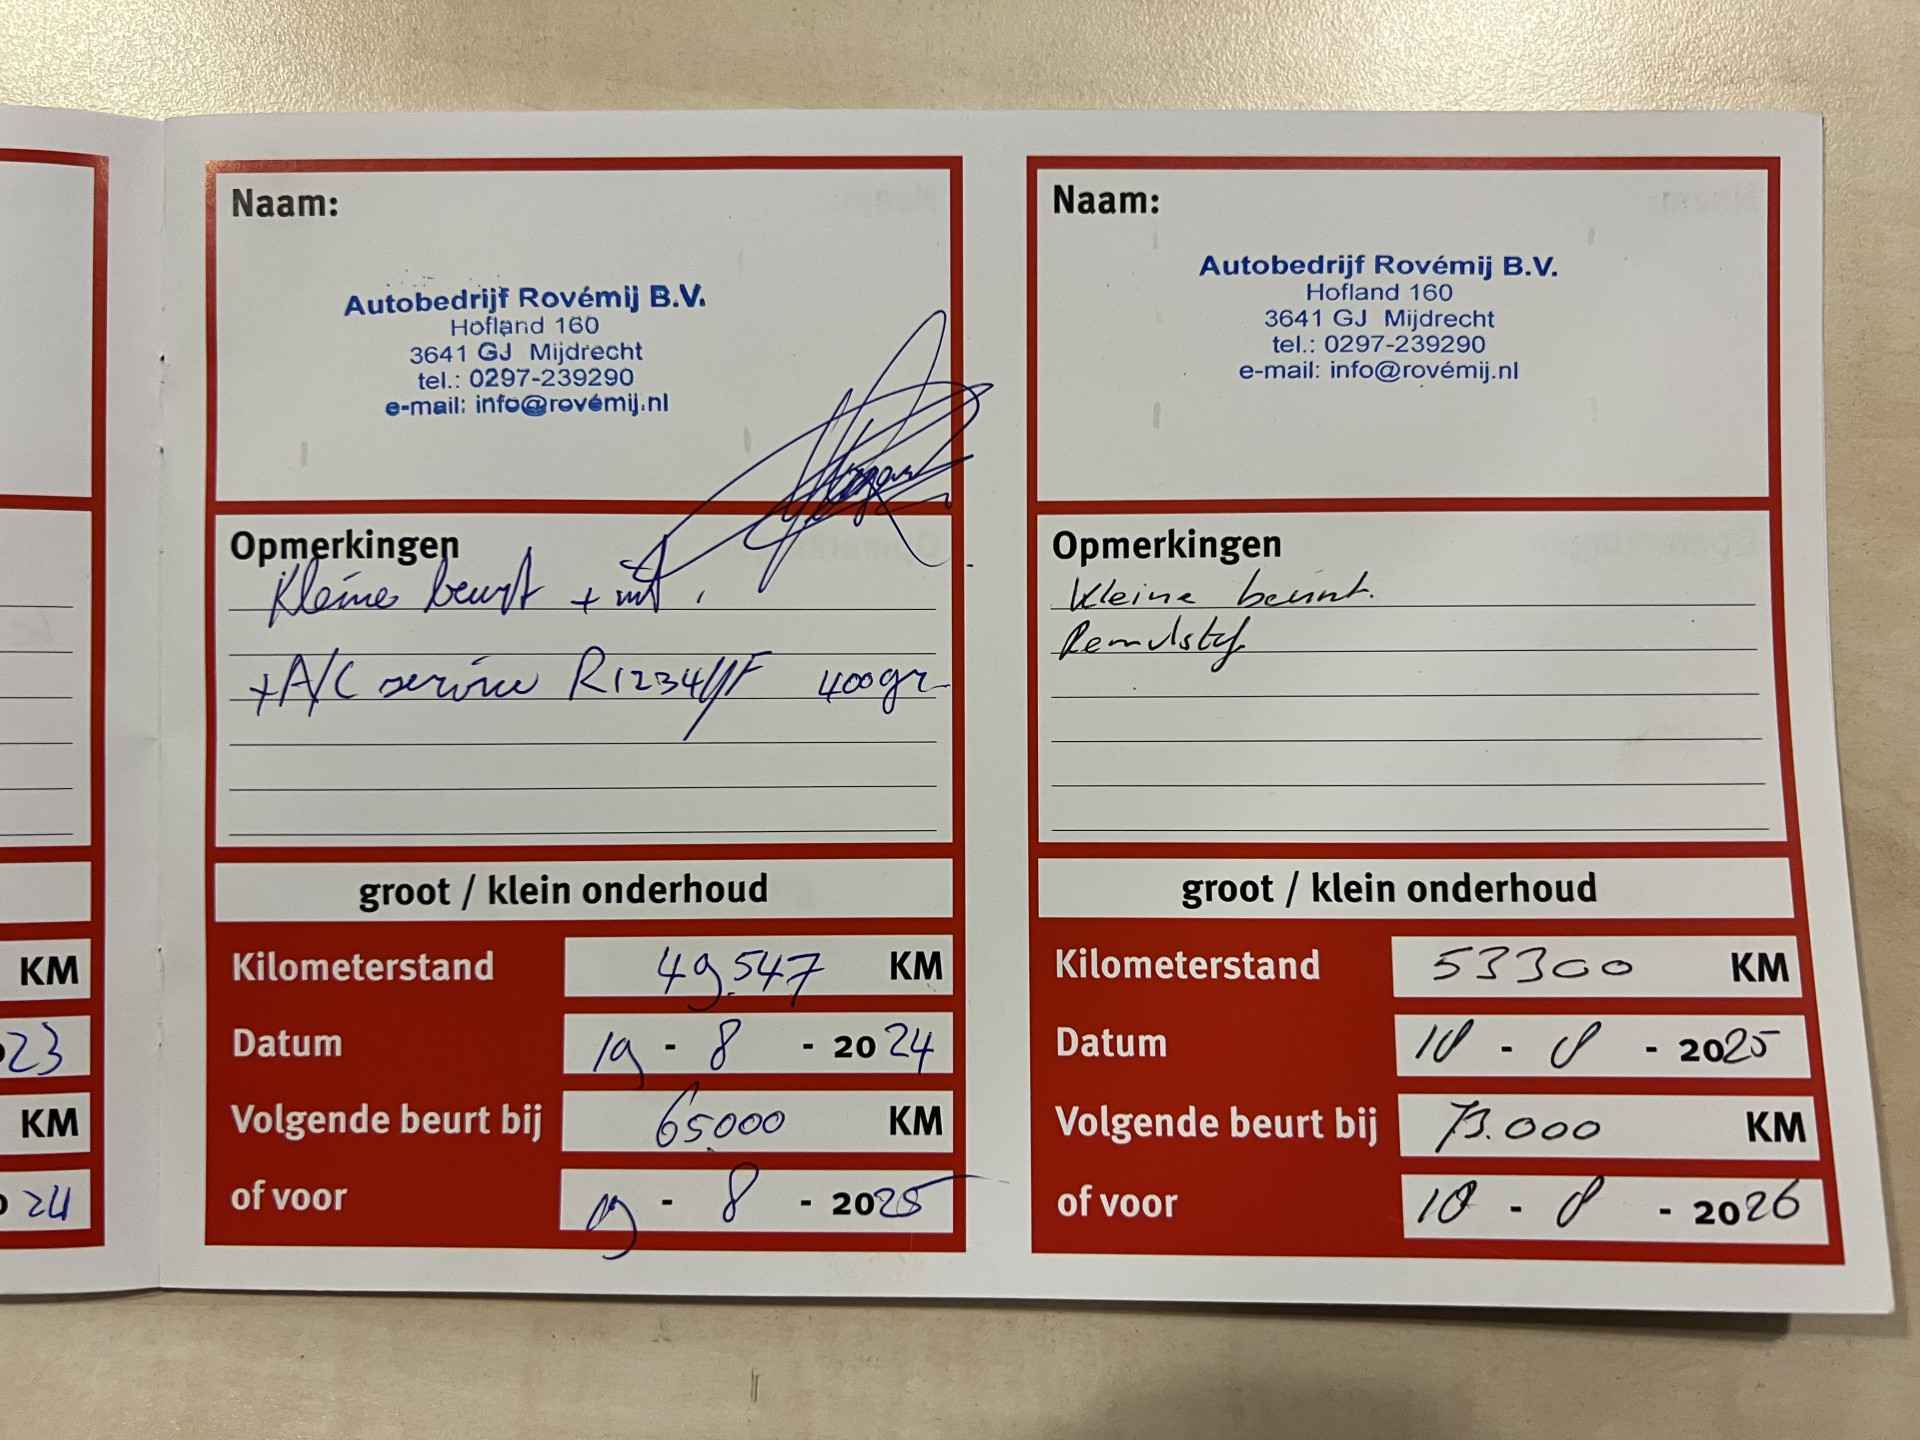 KM
23
KM
24
Naam:
Autobedrijf Rovémij B.V.
Hofland 160
3641 GJ Mijdrecht
tel.: 0297-239290
e-mail: info@rovémij.nl
Opmerkingen
Kleine beurt +
+ A/C service R1234YF 400gr
groot / klein onderhoud
Kilometerstand 49.547 KM
Datum 19 - 8 - 2024
Volgende beurt bij 65.000 KM
of voor 19 - 8 - 2025
Naam:
Autobedrijf Rovémij B.V.
Hofland 160
3641 GJ Mijdrecht
tel.: 0297-239290
e-mail: info@rovémij.nl
Opmerkingen
Kleine beurt.
groot / klein onderhoud
Kilometerstand 53300 KM
Datum 18 - 8 - 2025
Volgende beurt bij 73.000 KM
of voor 18 - 8 - 2026